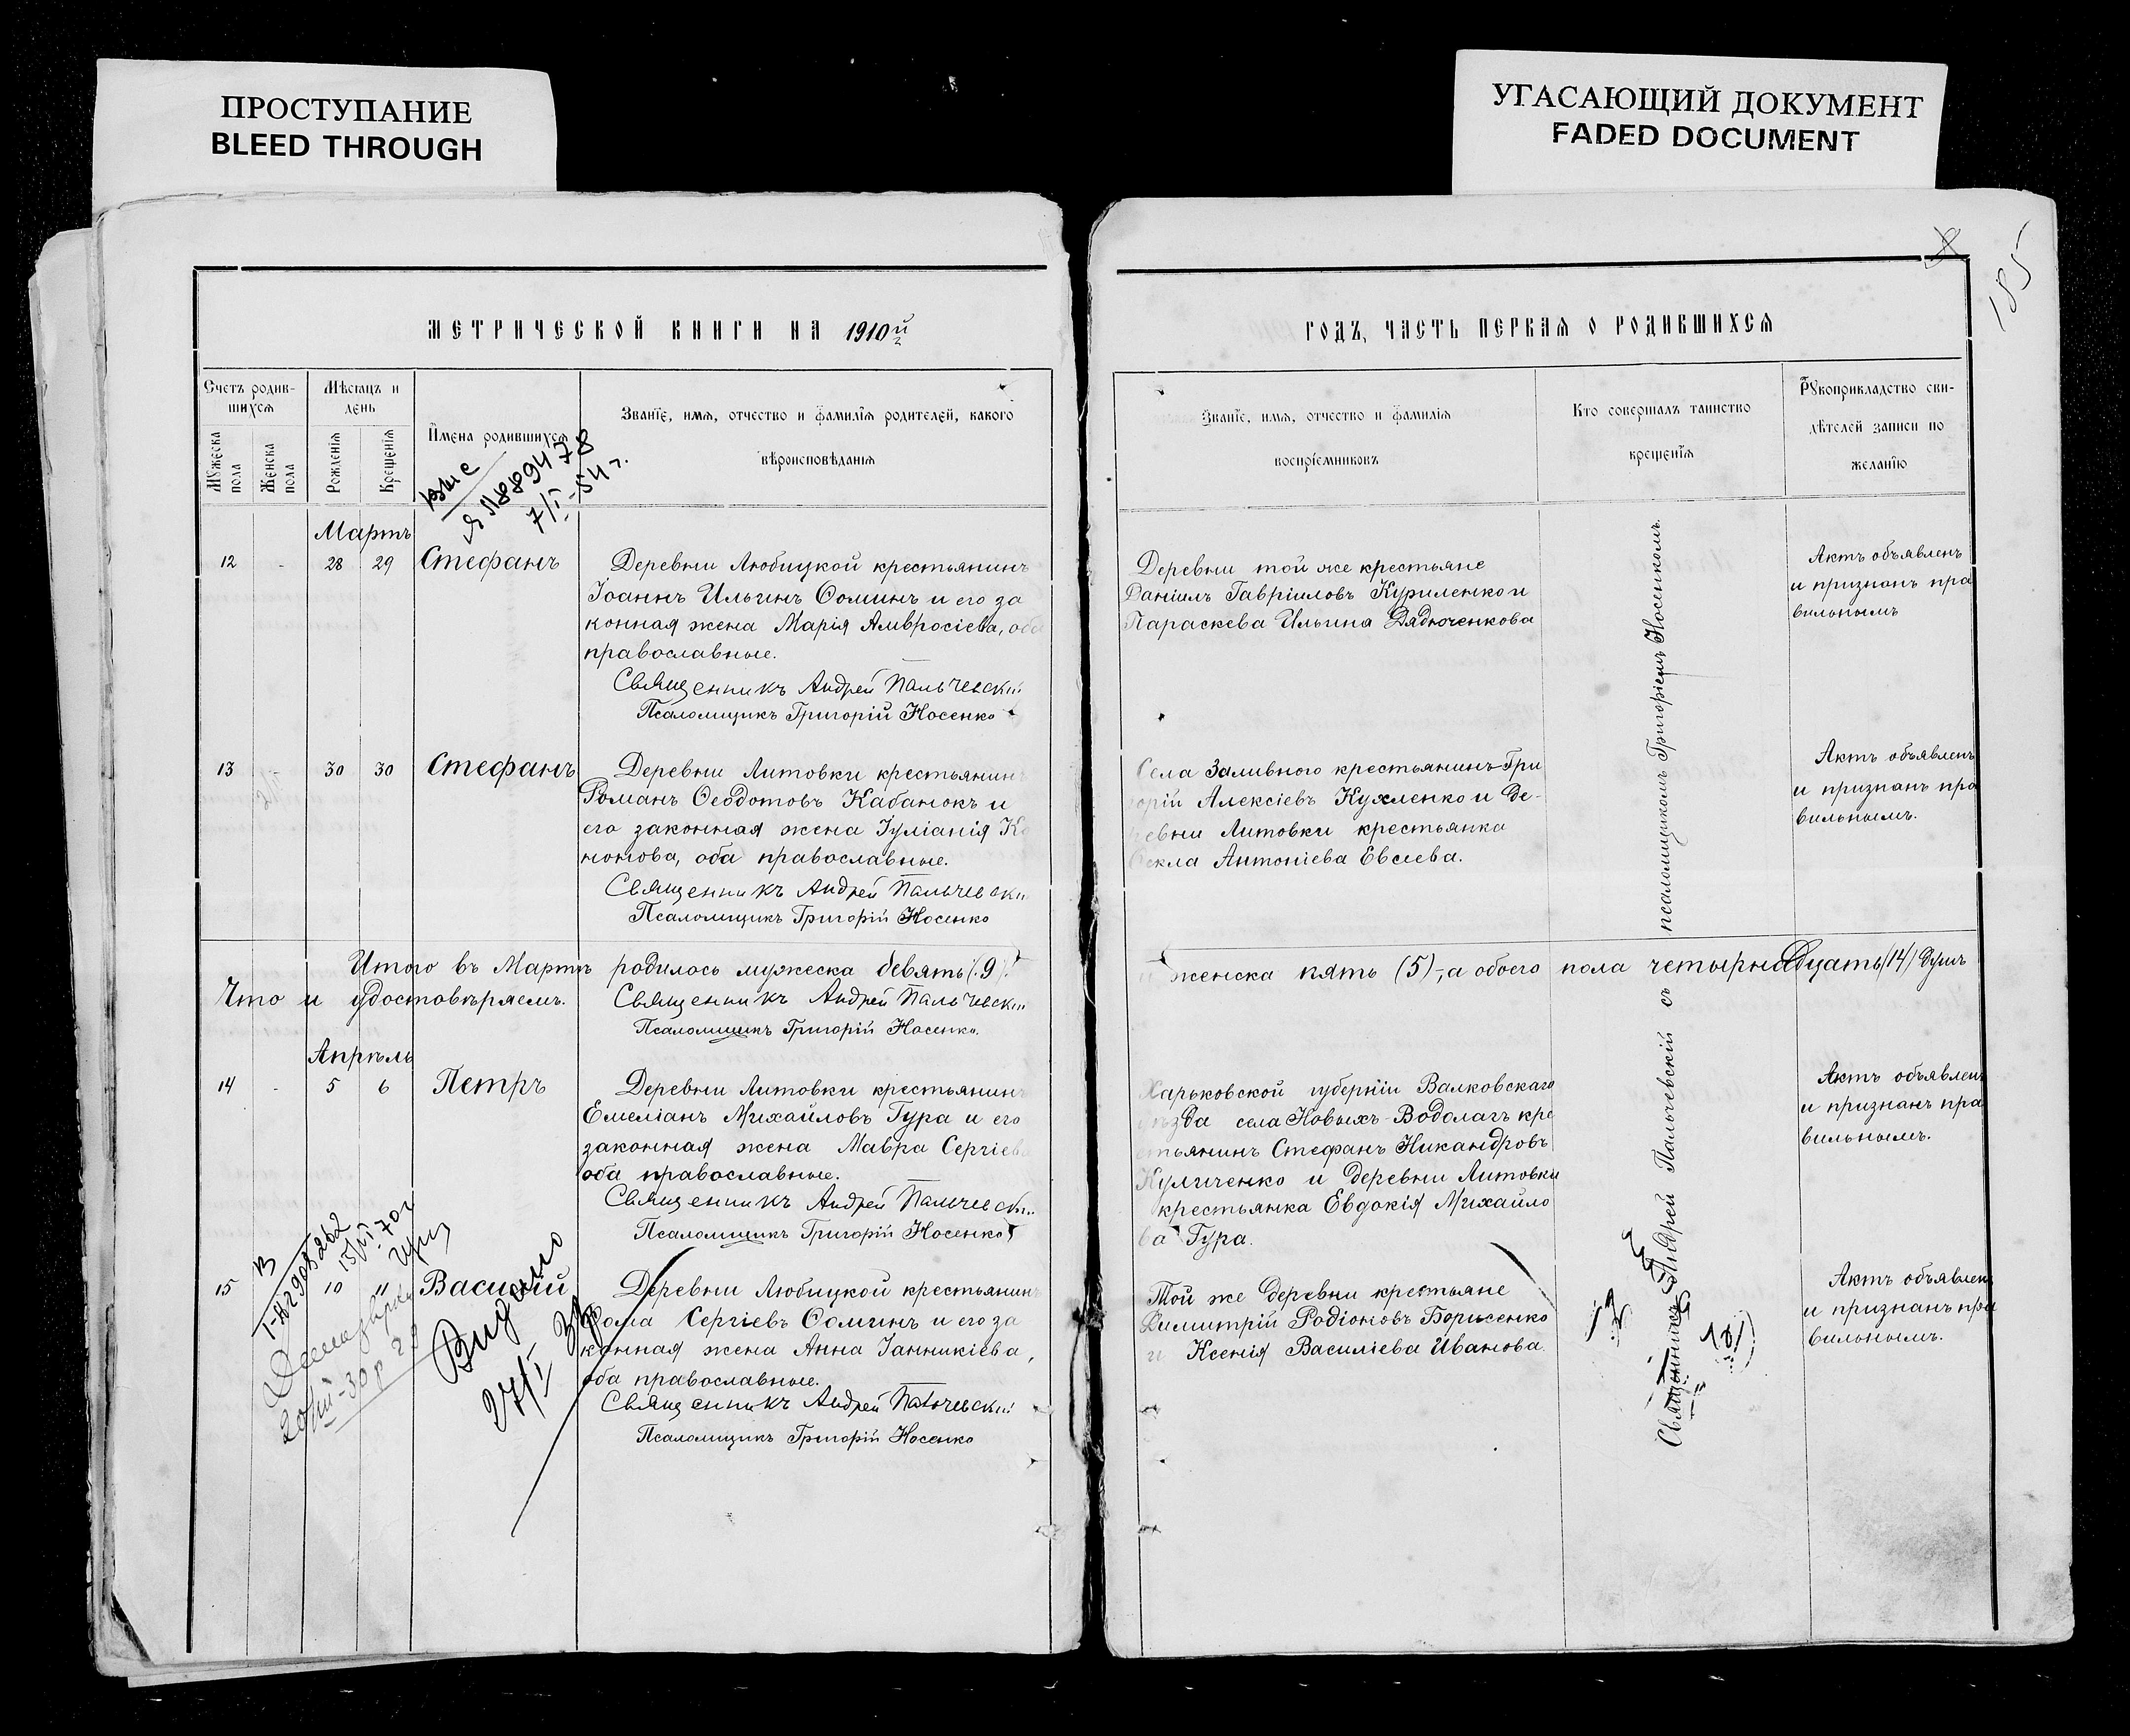 ПРОСТУПАНИЕ
BLEED THROUGH
УГАСАЮЩИЙ ДОКУМЕНТ
FADED DOCUMENT
185
МЕТРИЧЕСКОЙ КНИГИ НА 1910й
Счетъ родив-
шихся
Мѣсяцъ и
день
Имена родившихся
Званіе, имя, отчество и фамилія родителей, какого
вѣроисповѣданія
Мужеска
пола
Женска
пола
Рожденія
Крещенія
7/I-54 г.
Мартъ
12 - 28 29 Стефанъ
Деревни Любицкой крестьянинъ
Іоаннъ Ильинъ Ѳоминъ и его за
конная жена Марія Амвросіева, оба
православные.
Священникъ Андрей Пальчевскій
Псаломщикъ Григорій Носенко
13 - 30 30 Стефанъ
Деревни Литовки крестьянин
Романъ Ѳеодотовъ Кабанокъ и
его законная жена Іуліанія Ко
нонова, оба православные.
Священникъ Андрей Пальчевскій
Псаломщикъ Григорій Носенко
Итого въ Мартѣ родилось мужеска девять (9)
Что и удостовѣряемъ.
Священникъ Андрей Пальчевскій
Псаломщикъ Григорій Носенко.
Апрѣль
14 - 5 6 Петръ
Деревни Литовки крестьянин
Емеліанъ Михайловъ Гура и его
законная жена Мавра Сергіева
оба православные.
Священникъ Андрей Пальчевскій
Псаломщикъ Григорій Носенко
15 10 11 Василій
Деревни Любицкой крестьянинъ
Ѳома Сергіевъ Ѳоминъ и его за
конная жена Анна Іанникіева,
оба православные.
Священникъ Андрей Пальчевскій
Псаломщикъ Григорій Носенко
Выдано
27/I
ГОДЪ, ЧАСТЬ ПЕРВАЯ О РОДИВШИХСЯ
Званіе, имя, отчество и фамилія
воспріемниковъ
Кто совершалъ таинство
крещенія
Рукоприкладство сви-
дѣтелей записи по
желанію
Деревни той же крестьяне
Даніилъ Гавріиловъ Куриленко и
Параскева Ильина Дядюченкова
Актъ объявленъ
и признанъ пра
вильнымъ
Села Заливного крестьянинъ Гри
горій Алексіевъ Кухленко и де-
ревни Литовки крестьянка
Ѳекла Антоніева Евсеева.
Актъ объявленъ
и признанъ пра
вильнымъ.
и женска пять (5), а обоего пола четырнадцать (14) душъ
Харьковской губерніи Валковскаго
уѣзда села Новыхъ-Водолагъ кре
стьянинъ Стефанъ Никандровъ
Куличенко и деревни Литовки
крестьянка Евдокія Михайло
ва Гура.
Актъ объявленъ
и признанъ пра
вильнымъ.
Той же деревни крестьяне
Димитрій Родіоновъ Борисенко
и Ксенія Василіева Иванова.
Актъ объявленъ
и признанъ пра
вильнымъ.
Священникъ Андрей Пальчевскій съ псаломщикомъ Григоріемъ Носенкомъ.